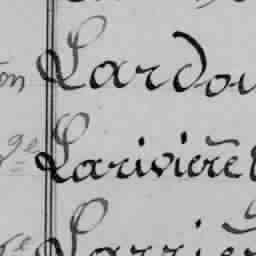 on Lardou
ge Larivière
Larrièr